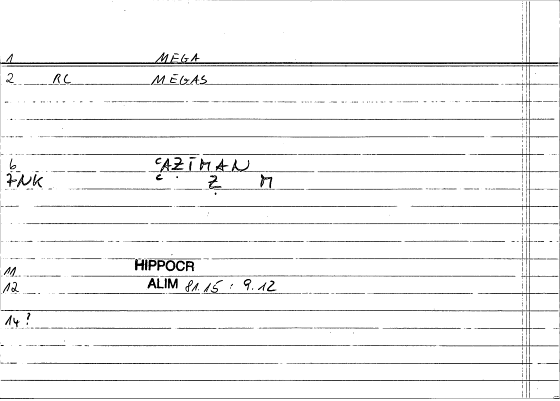 1 MEGA
2 RC MEGAS
6 ʿAẒĪMAN
7 NK ʿ Ẓ M
11 HIPPOCR
12 ALIM 81.15 : 9.12
14?